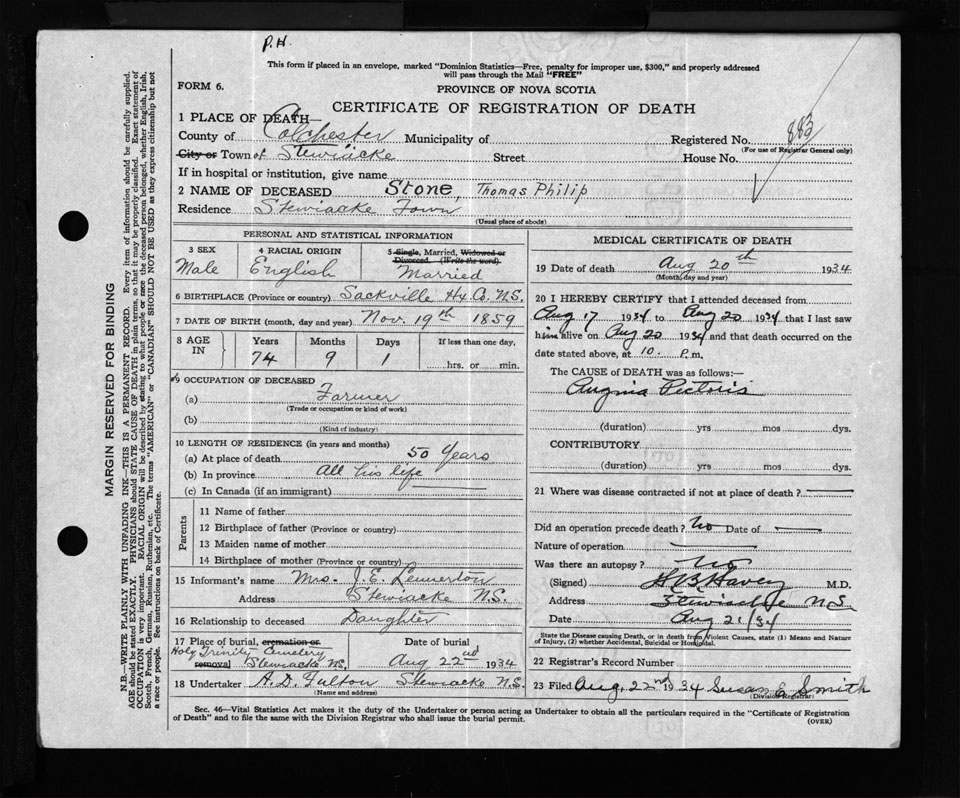 P.H.
This form if placed in an envelope, marked "Dominion Statistics—Free, penalty for improper use, $300," and properly addressed
will pass through the Mail "FREE"
FORM 6.
PROVINCE OF NOVA SCOTIA
CERTIFICATE OF REGISTRATION OF DEATH
1 PLACE OF DEATH—
County of Colchester Municipality of Registered No. 883
(For use of Registrar General only)
City or Town of Stewiacke Street House No.
If in hospital or institution, give name
2 NAME OF DECEASED Stone, Thomas Philip
Residence Stewiacke Town
(Usual place of abode)
PERSONAL AND STATISTICAL INFORMATION
3 SEX
Male
4 RACIAL ORIGIN
English
5 Single, Married, Widowed or
Divorced. (Write the word).
Married
6 BIRTHPLACE (Province or country) Sackville Hx. Co. N.S.
7 DATE OF BIRTH (month, day and year) Nov. 19th 1859
8 AGE IN Years Months Days If less than one day,
74 9 1 hrs. or min.
9 OCCUPATION OF DECEASED
(a) Farmer
(Trade or occupation or kind of work)
(b)
(Kind of industry)
10 LENGTH OF RESIDENCE (in years and months)
(a) At place of death 50 Years
(b) In province All his life
(c) In Canada (if an immigrant)
Parents
11 Name of father
12 Birthplace of father (Province or country)
13 Maiden name of mother
14 Birthplace of mother (Province or country)
15 Informant's name Mrs. J. E.
Address Stewiacke N.S.
16 Relationship to deceased Daughter
17 Place of burial, cremation or removal
Holy Trinity Cemetery
Stewiacke N.S.
Date of burial
Aug 22nd 1934
18 Undertaker A. D. Fulton Stewiacke N.S.
(Name and address)
MEDICAL CERTIFICATE OF DEATH
19 Date of death Aug 20th 1934
(Month, day and year)
20 I HEREBY CERTIFY that I attended deceased from
Aug 17 1934 to Aug 20 1934 that I last saw
him alive on Aug 20 1934 and that death occurred on the
date stated above, at 10. P.m.
The CAUSE of DEATH was as follows:—
Angina Pectoris
(duration) yrs mos dys.
CONTRIBUTORY
(duration) yrs mos dys.
21 Where was disease contracted if not at place of death?
Did an operation precede death? No Date of
Nature of operation
Was there an autopsy? No
(Signed) H B Havey M.D.
Address Stewiacke N.S.
Date Aug 21/34
State the Disease causing Death, or in death from Violent Causes, state (1) Means and Nature
of Injury, (2) whether Accidental, Suicidal or Homicidal.
22 Registrar's Record Number
23 Filed Aug. 22nd 1934 Susan E Smith
(Division Registrar)
Sec. 46—Vital Statistics Act makes it the duty of the Undertaker or person acting as Undertaker to obtain all the particulars required in the "Certificate of Registration
of Death" and to file the same with the Division Registrar who shall issue the burial permit.
(OVER)
MARGIN RESERVED FOR BINDING
N.B.—WRITE PLAINLY WITH UNFADING INK—THIS IS A PERMANENT RECORD. Every item of information should be carefully supplied.
AGE should be stated EXACTLY. PHYSICIANS should STATE CAUSE OF DEATH in plain terms, so that it may be properly classified. Exact statement of
OCCUPATION is very important. RACIAL ORIGIN will be described by stating to what people or race the deceased person belonged, whether English, Irish,
Scotch, French, German, Russian, Ruthenian, etc. The terms "AMERICAN" or "CANADIAN" SHOULD NOT BE USED as they express citizenship but not
a race or people. See instructions on back of Certificate.